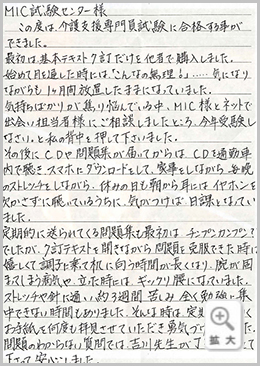 MIC試験センター様
この度は、介護支援専門員試験に合格する事が
できました。
最初は、基本テキスト7訂だけを他者で購入しました。
始めて目を通した時には「こんなの無理!」……気になり
ながらも1ヶ月間放置したままになっていました。
気持ちばかりが焦り悩んでいる中、MIC様とネットで
出会い担当者様にご相談しましたところ、今年受験し
なさい。と私の背中を押して下さいました。
その後にCDや問題集が届いてからは、CDを通勤車
内で聴き、スマホにダウンロードをして、家事をしながら、毎晩
のストレッチをしながら、休みの日も朝から耳にはイヤホンを
欠かさずにいるうちに、気がつけば日課となっていま
した。
定期的に送られてくる問題集も最初は、チンプンカンプン?
でしたが、7訂テキストを開きながら問題を克服できた時に
嬉しくて調子に乗て机に向う時間が長くなり、腕が固
まってしまう病気や、立た時にはギックリ腰になっていました。
ストレッチや針に通い約3週間苦しみ全く勉強に集
中できない時間もありました。そんな時は
お手紙を何度も拝見させていただき勇気づ
問題のわからない質問では、吉川先生が丁
下さって安心しました。
拡大